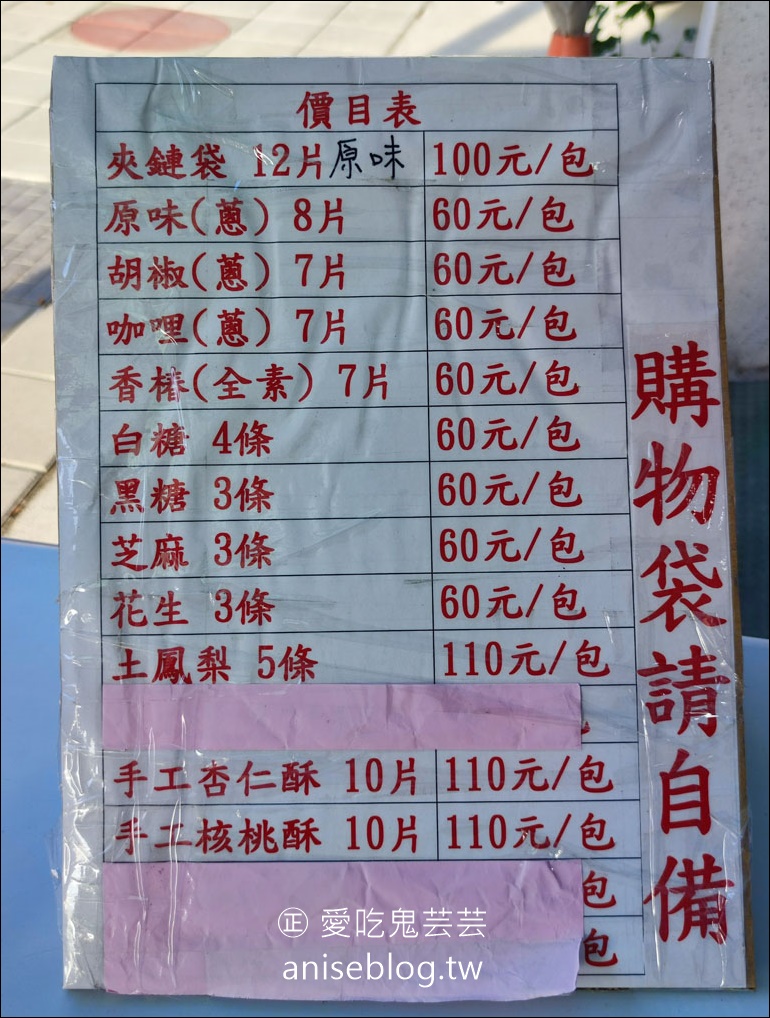 價目表
夾鏈袋 12片原味 100元/包
原味(蔥) 8片 60元/包
胡椒(蔥) 7片 60元/包
咖哩(蔥) 7片 60元/包
香椿(全素) 7片 60元/包
白糖 4條 60元/包
黑糖 3條 60元/包
芝麻 3條 60元/包
花生 3條 60元/包
土鳳梨 5條 110元/包
手工杏仁酥 10片 110元/包
手工核桃酥 10片 110元/包
包
包
購物袋請自備
正 愛吃鬼芸芸
aniseblog.tw